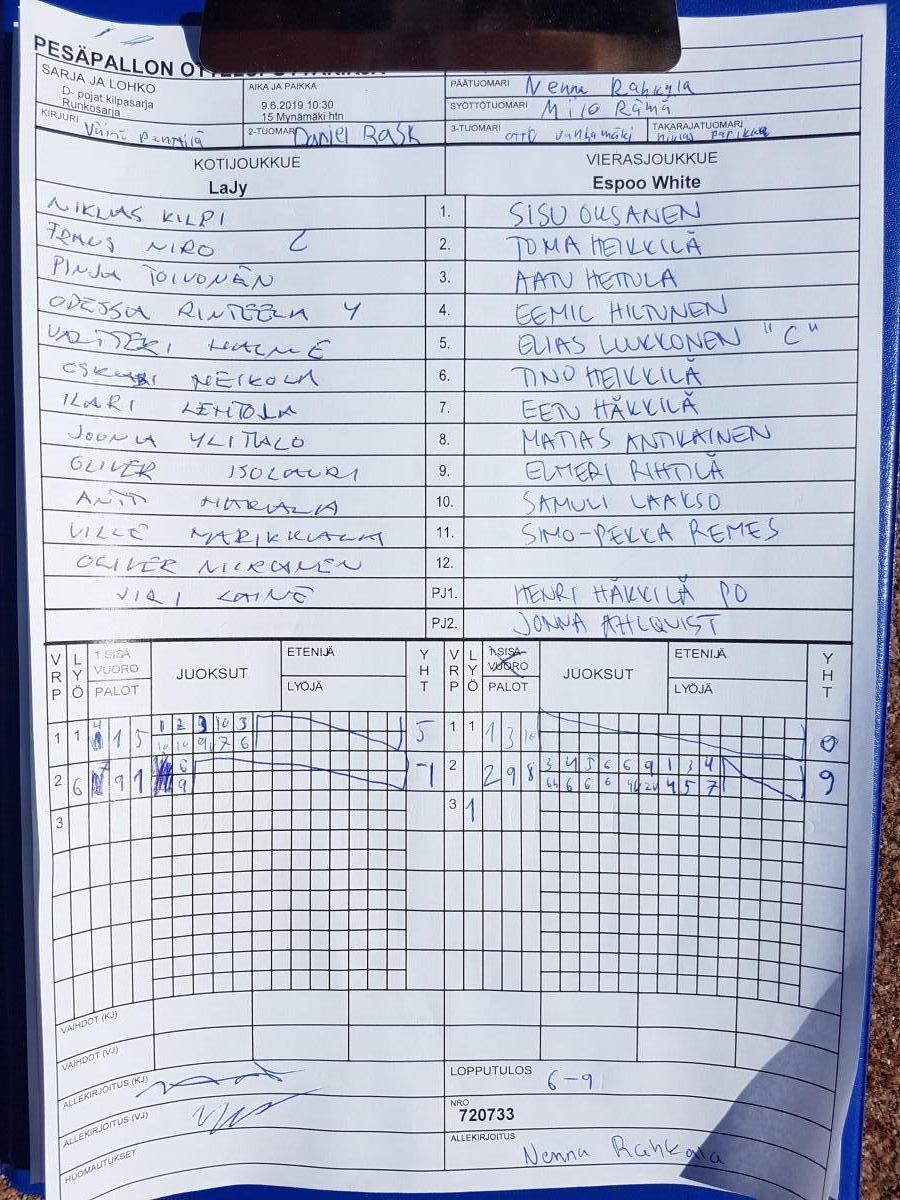 PESÄPALLON
SARJA JA LOHKO
D- pojat kilpasarja
Runkosarja
AIKA JA PAIKKA
9.6.2019 10:30
15 Mynämäki htn
PÄÄTUOMARI Nenna Rahkala
SYÖTTÖTUOMARI Milo Rämä
KIRJURI Väinö Penttilä
2-TUOMARI Daniel Rask
3-TUOMARI Otto Vanhamäki
TAKARAJATUOMARI
KOTIJOUKKUE
LaJy
VIERASJOUKKUE
Espoo White
NIKLAS KILPI 1. SISU OKSANEN
NIRO C 2. TOMA HEIKKILÄ
PINJA TOIVONEN 3. AATU HETTULA
ODESSA RINTEELA 4. EEMIL HILTUNEN
VALTTERI HALME 5. ELIAS LUUKKONEN "C"
NEIKOLA 6. TINO HEIKKILÄ
ILARI LEHTOLA 7. EETU HÄKKILÄ
JOONA YLITALO 8. MATIAS ANTIKAINEN
OLIVER ISOLAURI 9. ELMERI RIHTILÄ
10. SAMULI LAAKSO
VILLE 11. SIMO-PEKKA REMES
OLIVER 12.
LAINE PJ1. HENRI HÄKKILÄ PO
PJ2. JONNA AHLQVIST
VRP LYÖ 1.SISÄVUORO PALOT JUOKSUT ETENIJÄ LYÖJÄ YHT VRP LYÖ 1.SISÄVUORO PALOT JUOKSUT ETENIJÄ LYÖJÄ YHT
1 1 4 1 5 1 2 9 10 3 5 1 1 1 3 10 0
10 10 9 7 6
2 6 7 9 1 6 1 2 2 9 8 3 4 5 6 6 9 1 3 4 9
9 6 6 6 4 5 7
3 3 1
VAIHDOT (KJ)
VAIHDOT (VJ)
ALLEKIRJOITUS (KJ)
LOPPUTULOS 6-9
ALLEKIRJOITUS (VJ)
NRO
720733
HUOMAUTUKSET
ALLEKIRJOITUS
Nenna Rahkala